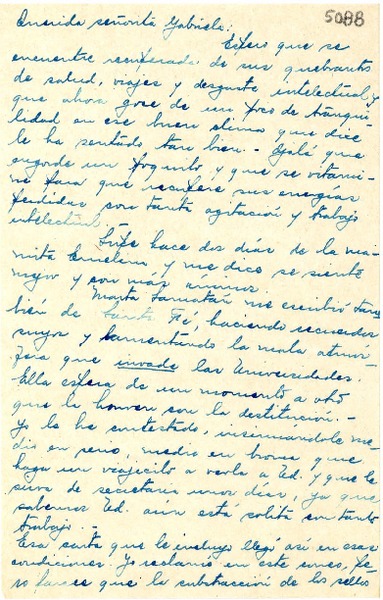 5088
Querida señorita Gabriela:
Espero que se
encuentre recuperada de sus quebrantos
de salud, viajes y desgaste intelectual, y
que ahora gose de un poco de tranqui-
lidad en ese buen clima que dice
le ha sentado tan bien.- Ojalá que
engorde un poquito, y que se vitami-
ne para que recupere sus energías
perdidas con tanta agitación y trabajo
intelectual.
Supe hace dos días de la ma-
mita Emelina, y me dice se siente
mejor y con más animos.
Marta Samatán me escribió tam-
bién de Santa Fé, haciendo recuerdos
suyos y lamentando la mala atmós-
fera que invade las Universidades.
Ella espera de un momento a otro
que la honren con la destitución.-
Yo le he contestado, insinuándole me-
dio en serio, medio en broma que
haga un viajecito a verla a Ud. y que le
sirva de secretaria unos días, ya que
sabemos Ud. aun está solita con tanto
trabajo.-
Esa carta que le incluyo llegó así en esas
condiciones. Yo reclamé en este correo, pe-
ro parece que la substracción de los sellos